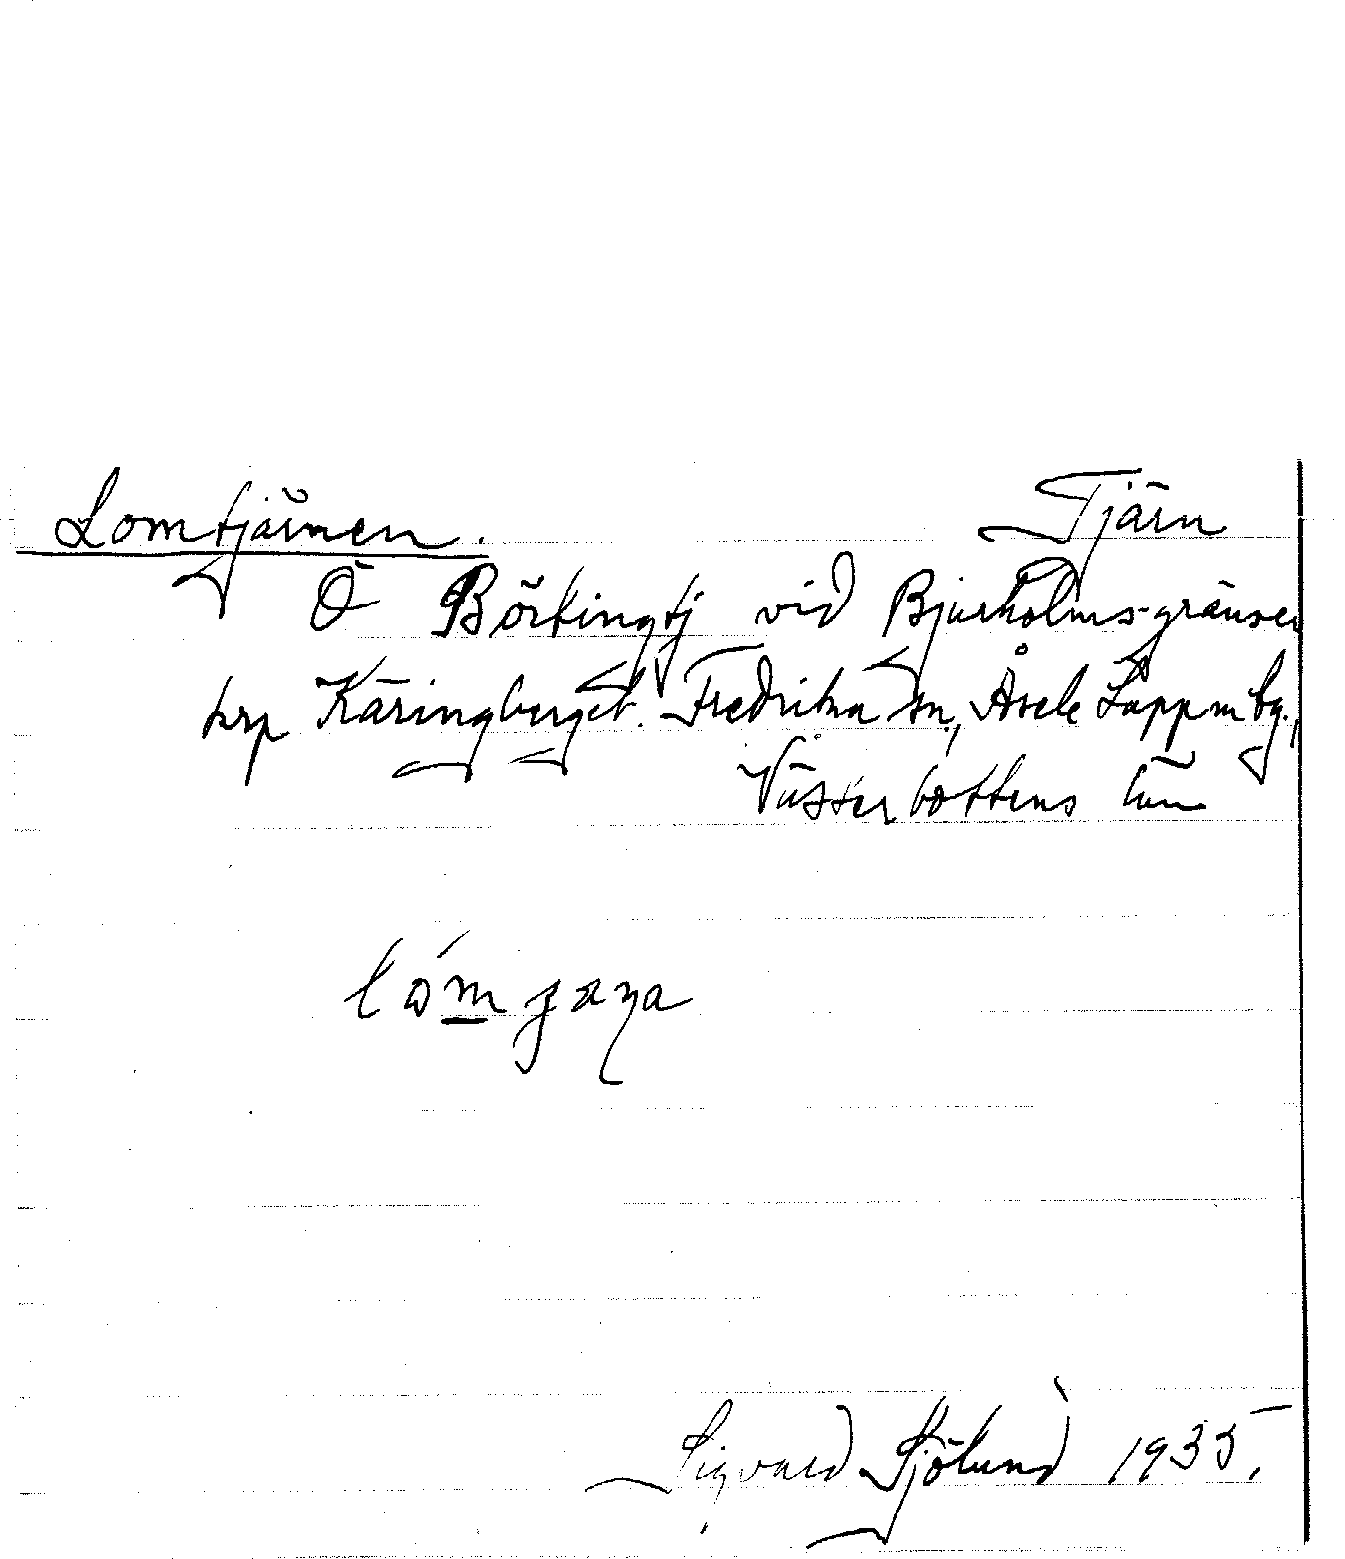 Lomtjärnen. Tjärn
Ö Börtingtj vid Bjurholms-gränsen
krp Käringberget. Fredrika sn, Åsele Lappm bg.,
Västerbottens län
Sigvard Sjölund 1935.